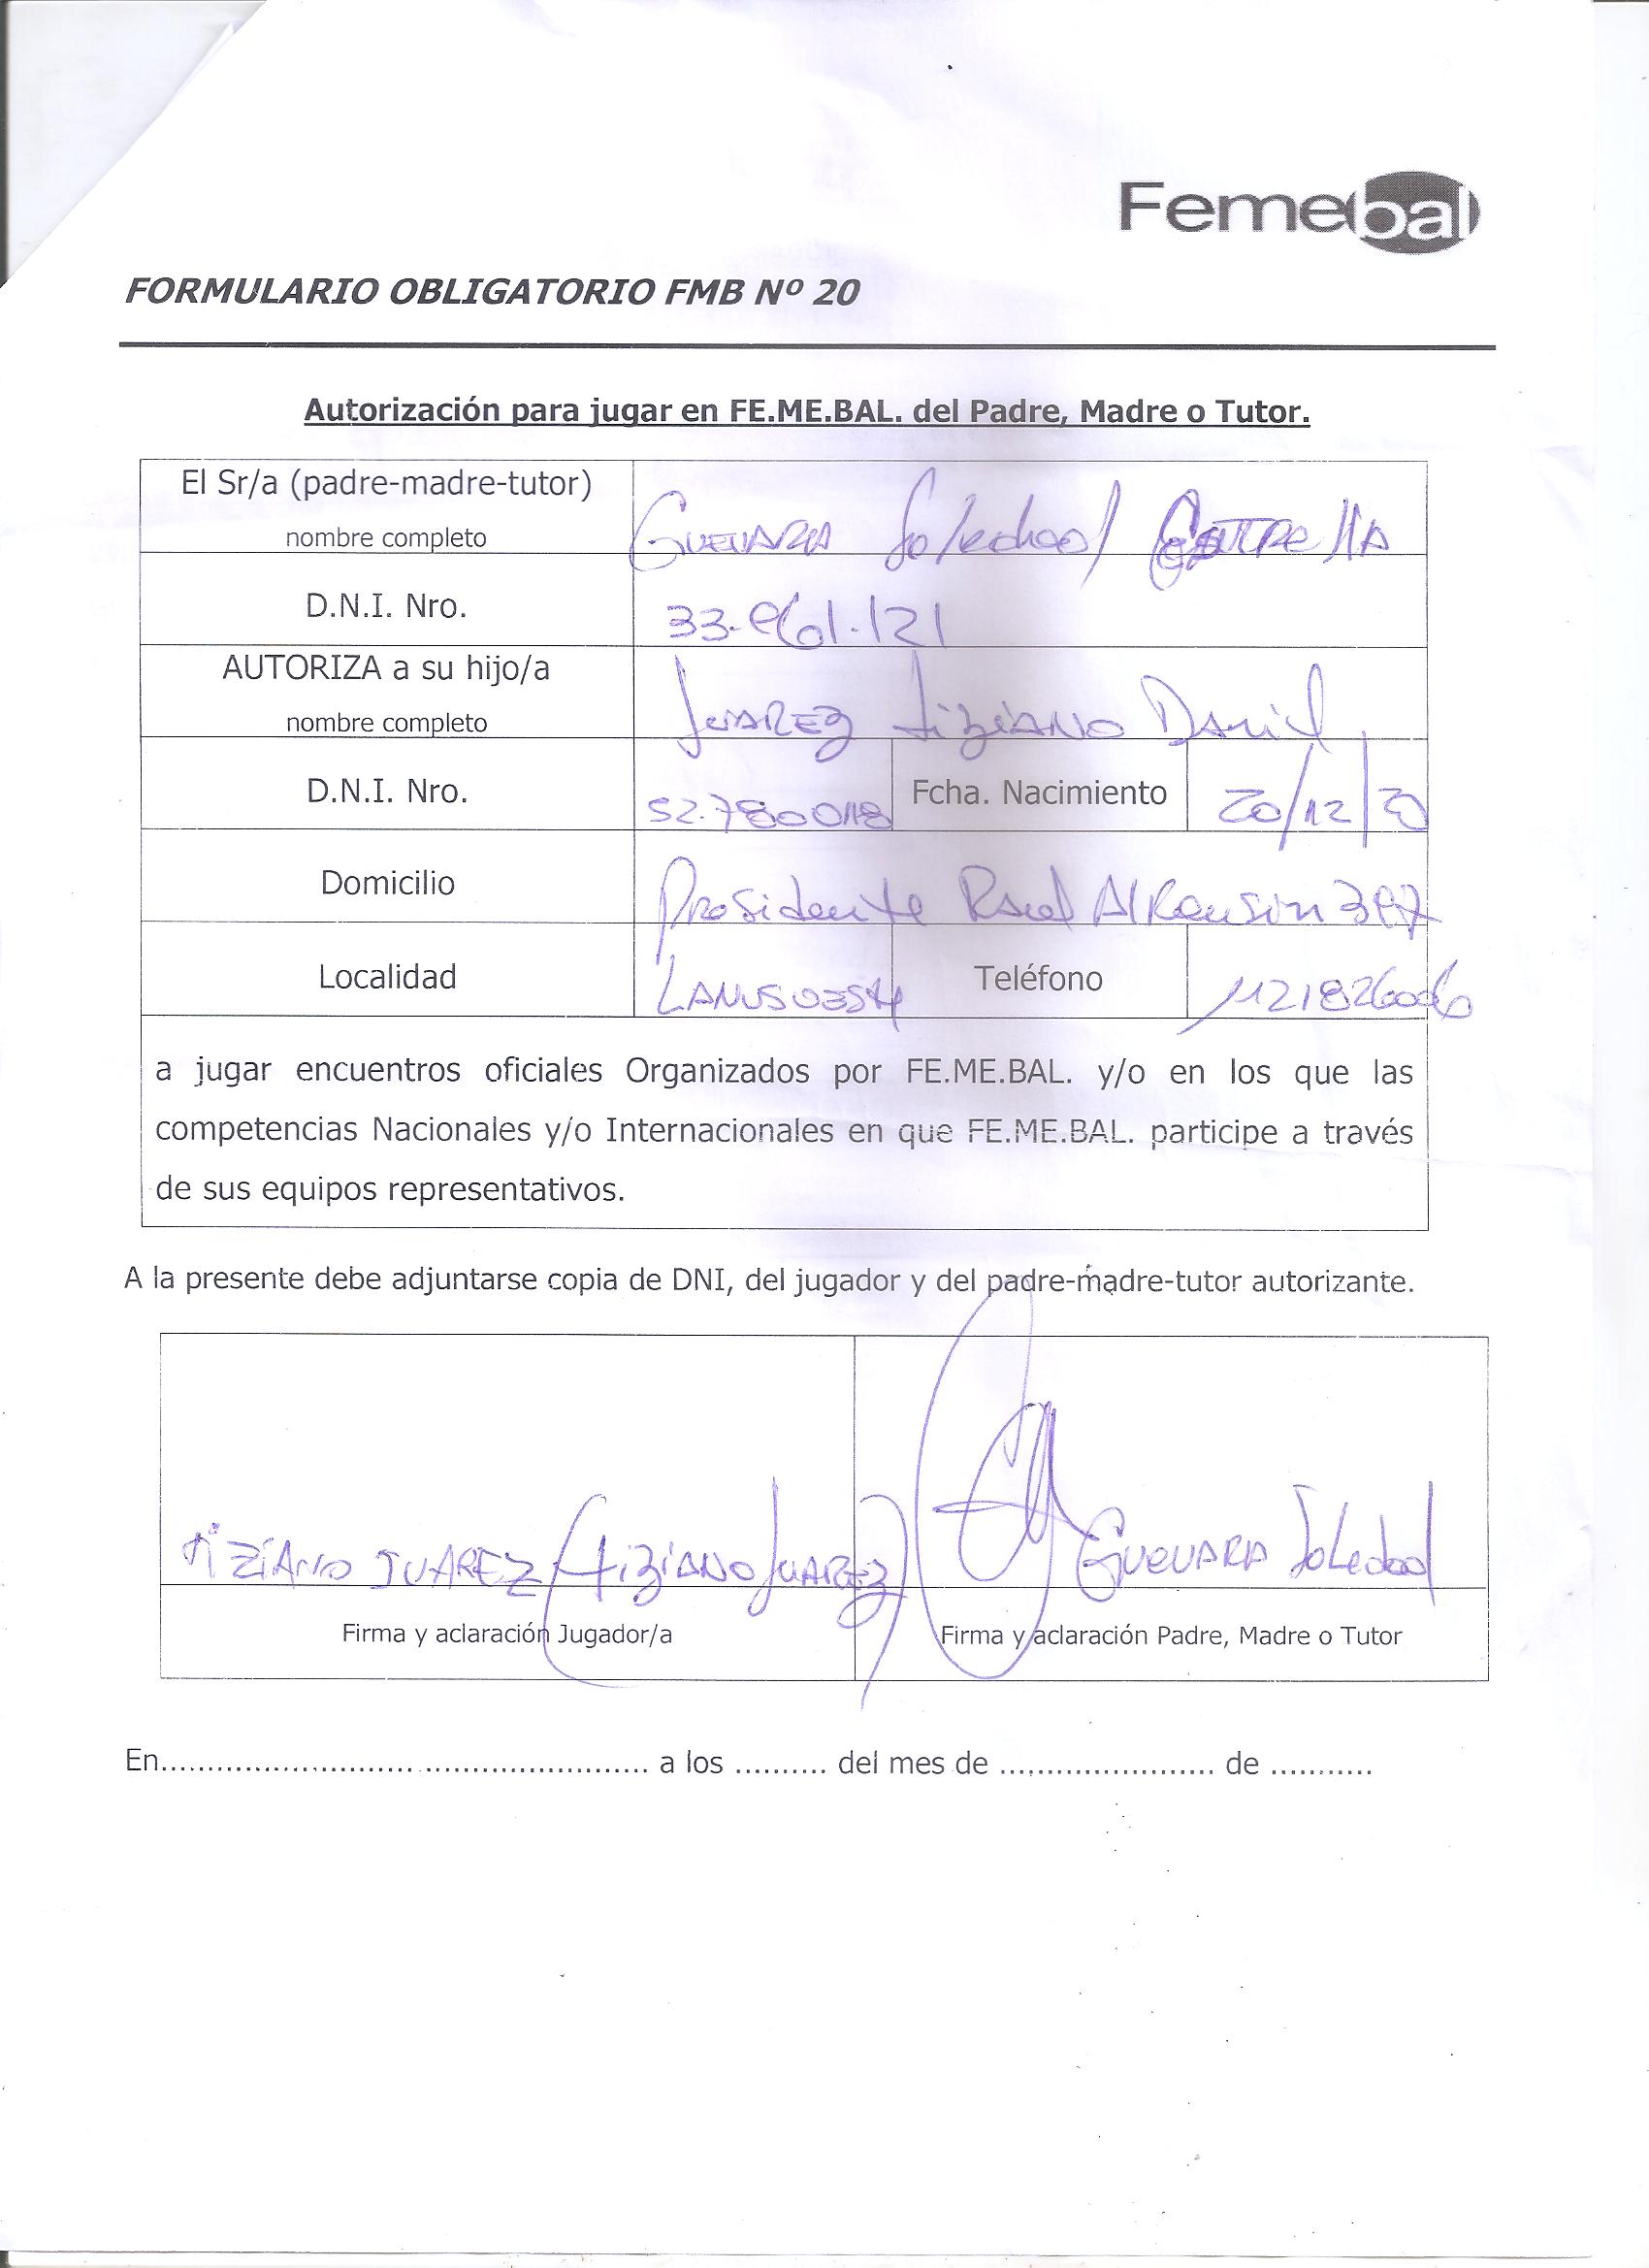 Femebal
FORMULARIO OBLIGATORIO FMB Nº 20
Autorización para jugar en FE.ME.BAL. del Padre, Madre o Tutor.
El Sr/a (padre-madre-tutor)
nombre completo
GUEVARA Soledad
D.N.I. Nro.
AUTORIZA a su hijo/a
nombre completo
JUAREZ tiziANO DANiel
D.N.I. Nro. 52.780018 Fcha. Nacimiento 20/12/
Domicilio Presidente Raul
Localidad LANUS Teléfono
a jugar encuentros oficiales Organizados por FE.ME.BAL. y/o en los que las
competencias Nacionales y/o Internacionales en que FE.ME.BAL. participe a través
de sus equipos representativos.
A la presente debe adjuntarse copia de DNI, del jugador y del padre-madre-tutor autorizante.
TiZiANO JUAREZ (tiziANO JUAREZ) GUEVARA Soledad
Firma y aclaración Jugador/a Firma y aclaración Padre, Madre o Tutor
En..................................................... a los .......... del mes de ....................... de ...........